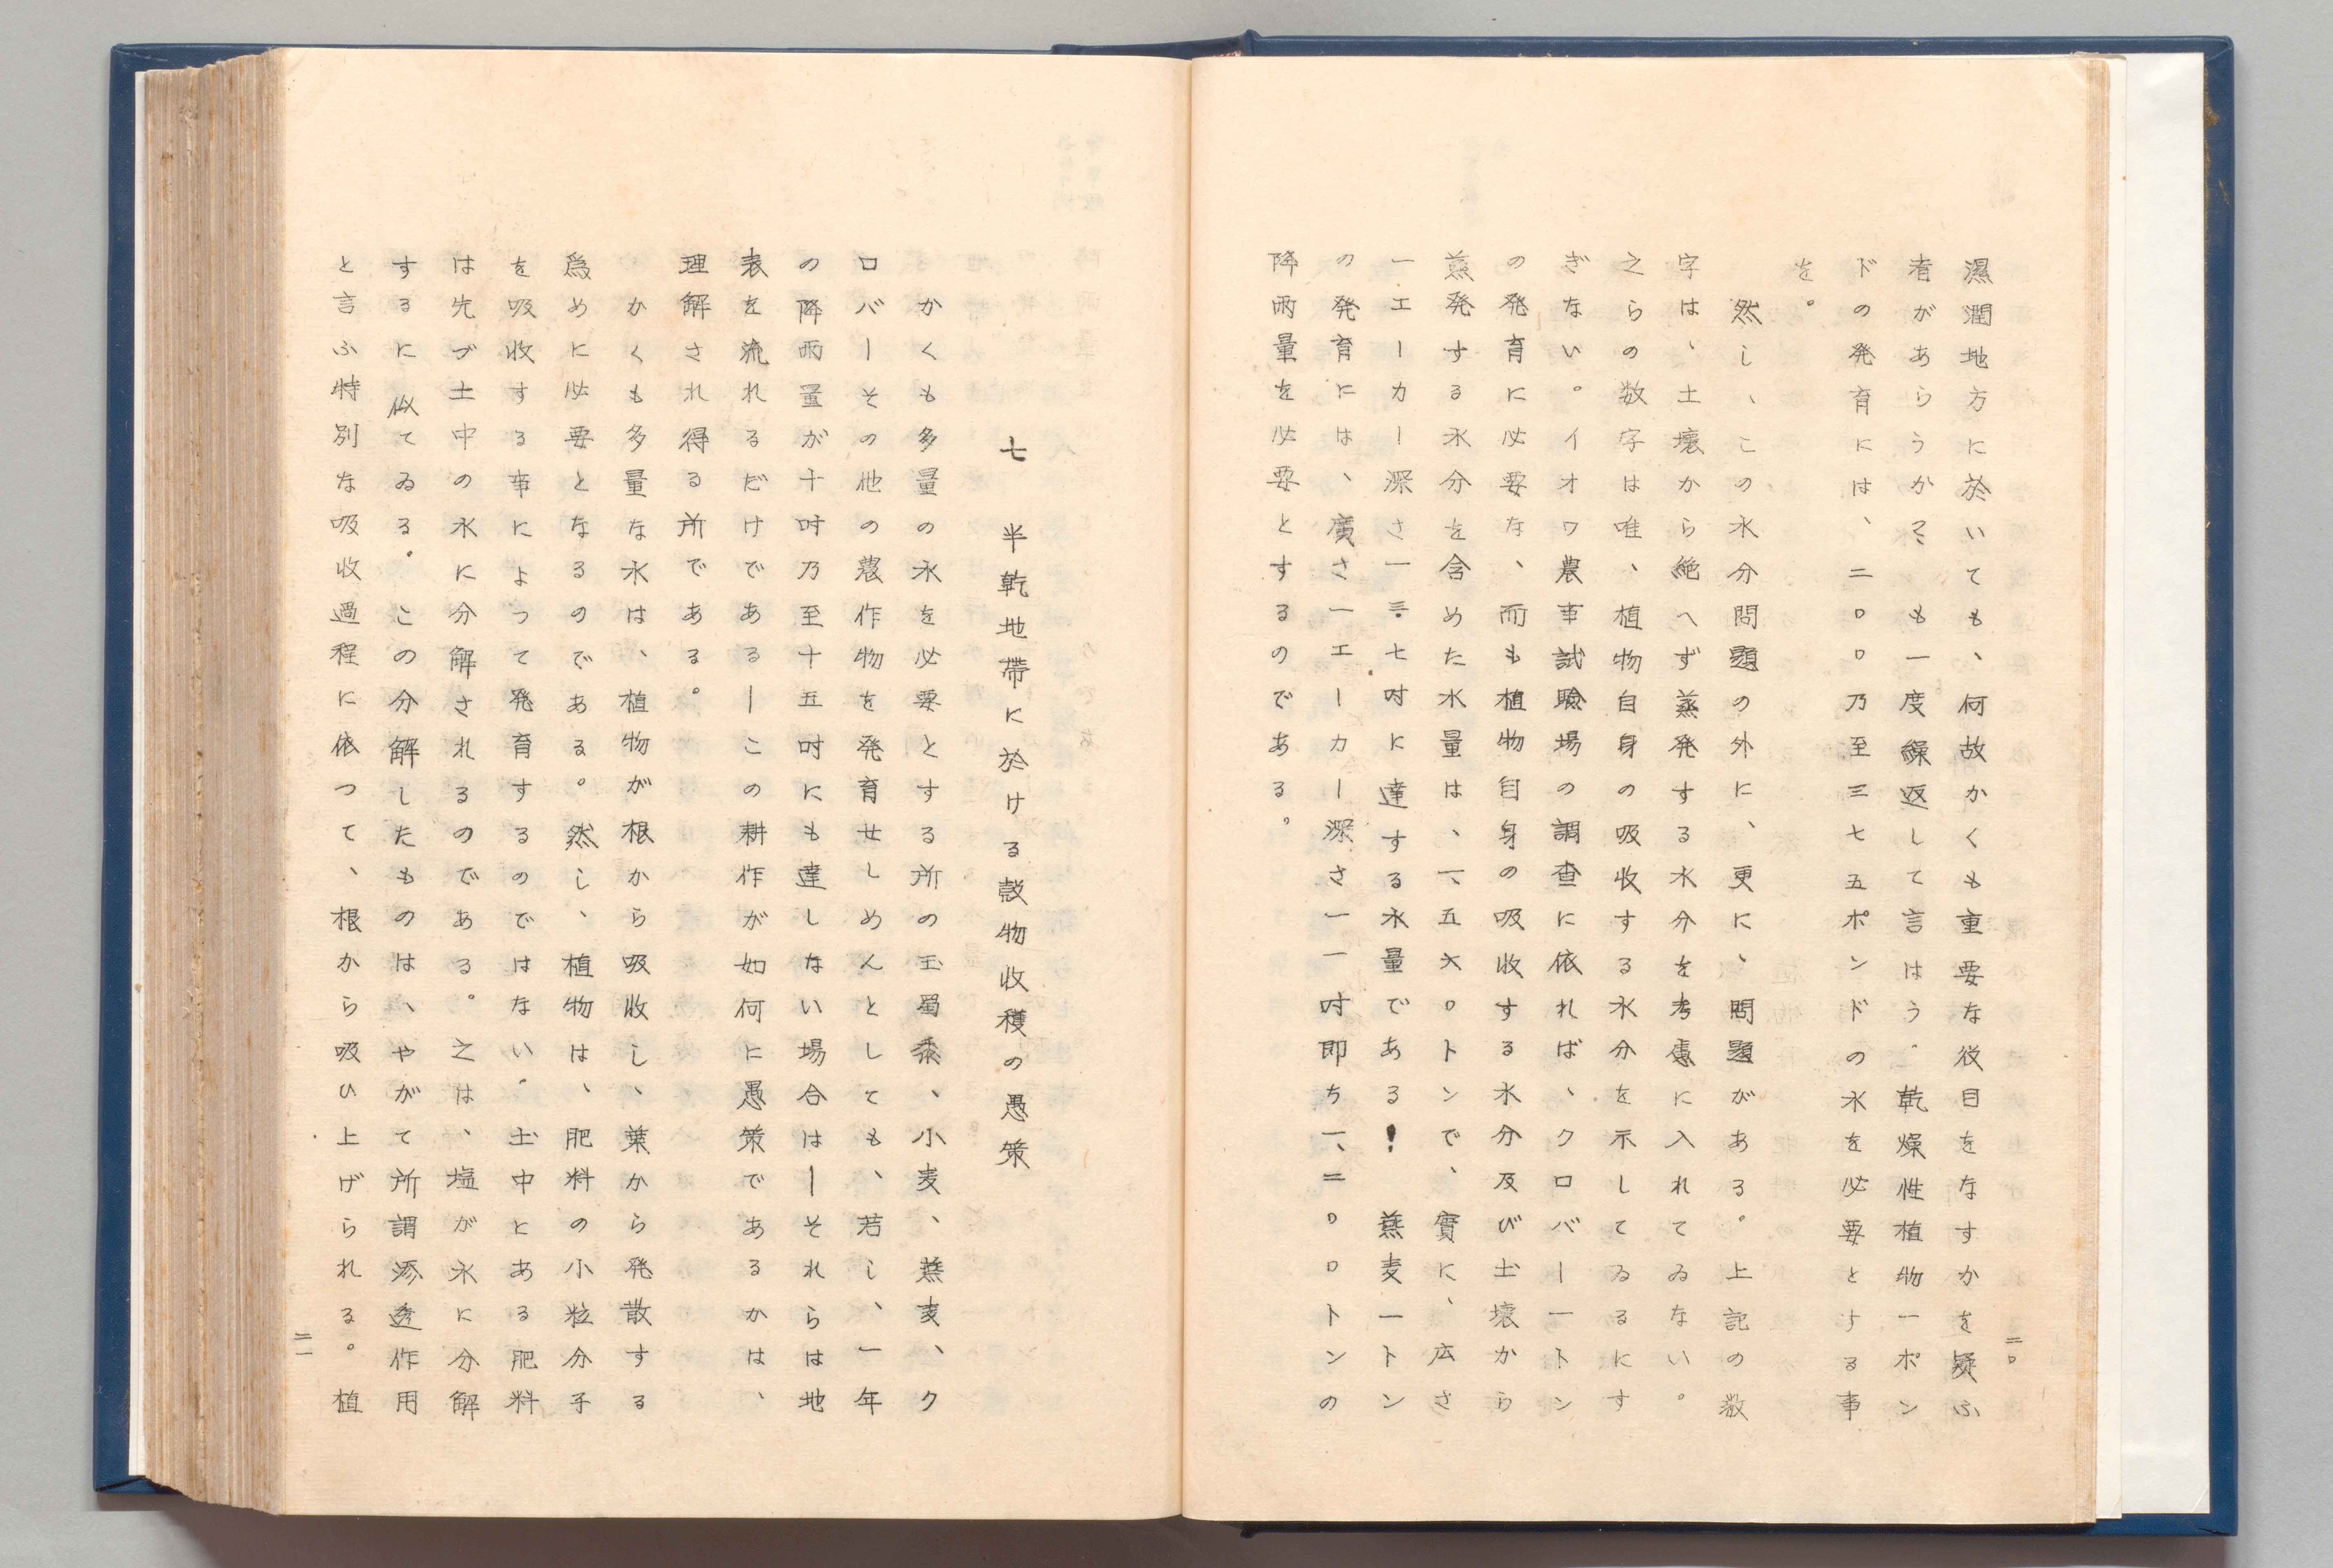 濕潤地方に於いても、何故かくも重要な役目をなすかを疑ふ
者があらうか？も一度繰返して言はう。乾燥性植物一ポン
ドの発育には、二〇〇乃至三七五ポンドの水を必要とする事
を。
然し、この水分問題の外に、更に、問題がある。上記の数
字は、土壌から絶へず蒸発する水分を考慮に入れてゐない。
之らの数字は唯、植物自身の吸收する水分を示してゐるにす
ぎない。イオワ農事試験場の調査に依れば、クロバー一トン
の発育に必要な、而も植物自身の吸收する水分及び土壌から
蒸発する水分を含めた水量は、一、五六〇トンで、實に、広さ
一エーカー深さ一三・七吋に達する水量である！燕麦一トン
の発育には、廣さ一エーカー深さ一一吋即ち一、二〇〇トンの
降雨量を必要とするのである。
二〇
七 半乾地帶に於ける穀物收穫の愚策
かくも多量の水を必要とする所の玉蜀黍、小麦、燕麦、ク
ロバーその他の農作物を発育せしめんとしても、若し、一年
の降雨量が十吋乃至十五吋にも達しない場合はーそれらは地
表を流れるだけであるーこの耕作が如何に愚策であるかは、
理解され得る所である。
かくも多量な水は、植物が根から吸收し、葉から発散する
爲めに必要となるのである。然し、植物は、肥料の小粒分子
を吸收する事によって発育するのではない。土中とある肥料
は先づ土中の水に分解されるのである。之は、塩が水に分解
するに似てゐる。この分解したものは、やがて所謂滲透作用
と言ふ特別な吸收過程に依つて、根から吸ひ上げられる。植
二一